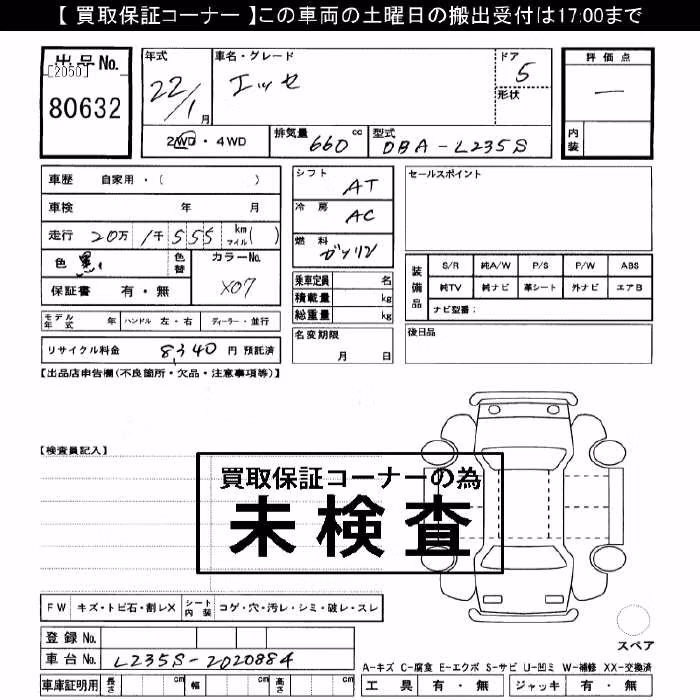 【 買取保証コーナー 】この車両の土曜日の搬出受付は17:00まで
出品No.
[2050]
80632
年式
22/1月
車名・グレード
エッセ
ドア
5
形状
評価点
—
内装
2WD・4WD
排気量 660 cc
型式 DBA-L235S
車歴 自家用・( )
車検 年 月
走行 20万 1千 555 km マイル( )
色 黒
色替
カラーNo.
X07
保証書 有・無
シフト AT
冷房 AC
燃料 ガソリン
乗車定員 名
積載量 kg
総重量 kg
名変期限
月 日
セールスポイント
装備品
S/R 純A/W P/S P/W ABS
純TV 純ナビ 革シート 外ナビ エアB
ナビ型番:
後日品
モデル年式 年 ハンドル 左・右 ディーラー・並行
リサイクル料金 8,340 円 預託済
【出品店申告欄(不良箇所・欠品・注意事項等)】
【検査員記入】
買取保証コーナーの為
未検査
FW キズ・トビ石・割レX シート内装 コゲ・穴・汚レ・シミ・破レ・スレ
登録No.
車台No. L235S-2020884
車庫証明用 長さ cm 幅 cm 高さ cm
スペア
A-キズ C-腐食 E-エクボ S-サビ U-凹ミ W-補修 XX-交換済
工具 有・無 ジャッキ 有・無